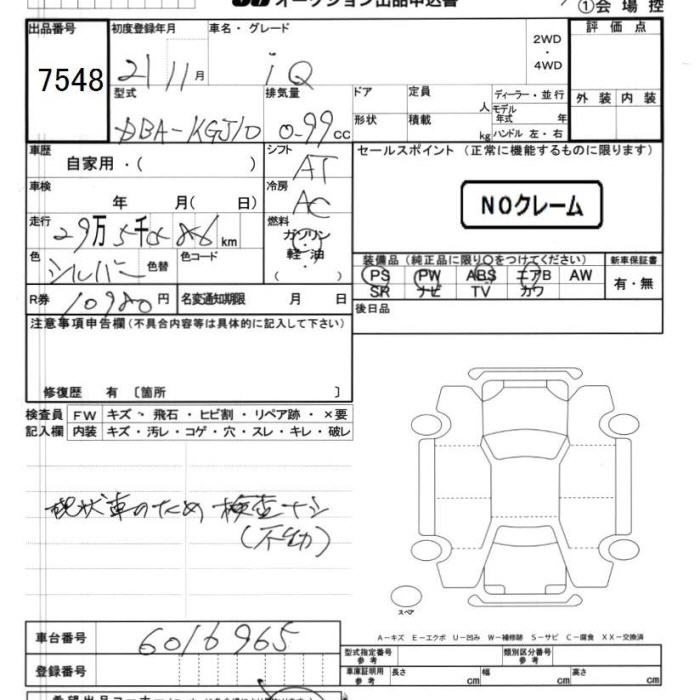 オークション出品申込書
①会場控
出品番号 初度登録年月 車名・グレード 評価点
7548 21 11月 iQ 2WD・4WD
型式 排気量 ドア 定員 人 ディーラー・並行 外装 内装
DBA-KGJ10 0.99cc 形状 積載 kg モデル年式 年 ハンドル 左・右
車歴 シフト セールスポイント (正常に機能するものに限ります)
自家用・( ) AT
車検 冷房 NOクレーム
年 月( 日) AC
走行 燃料
29万5千 km ガソリン
色 色替 色コード 軽・油 装備品 (純正品に限り○をつけてください) 新車保証書
シルバー PS PW ABS エアB AW 有・無
SR ナビ TV カワ
R券 10980円 名変通知期限 月 日 後日品
注意事項申告欄(不具合内容等は具体的に記入して下さい)
修復歴 有 〔箇所 〕
検査員 FW キズ・飛石・ヒビ割・リペア跡・×要
記入欄 内装 キズ・汚レ・コゲ・穴・スレ・キレ・破レ
現状車のため 検査ナシ
(不動)
スペア
A-キズ E-エクボ U-凹み W-補修跡 S-サビ C-腐食 XX-交換済
車台番号 6016965
型式指定番号 参考 類別区分番号 参考
登録番号 車庫証明用 参考 長さ cm 幅 cm 高さ cm
希望出品コーナー